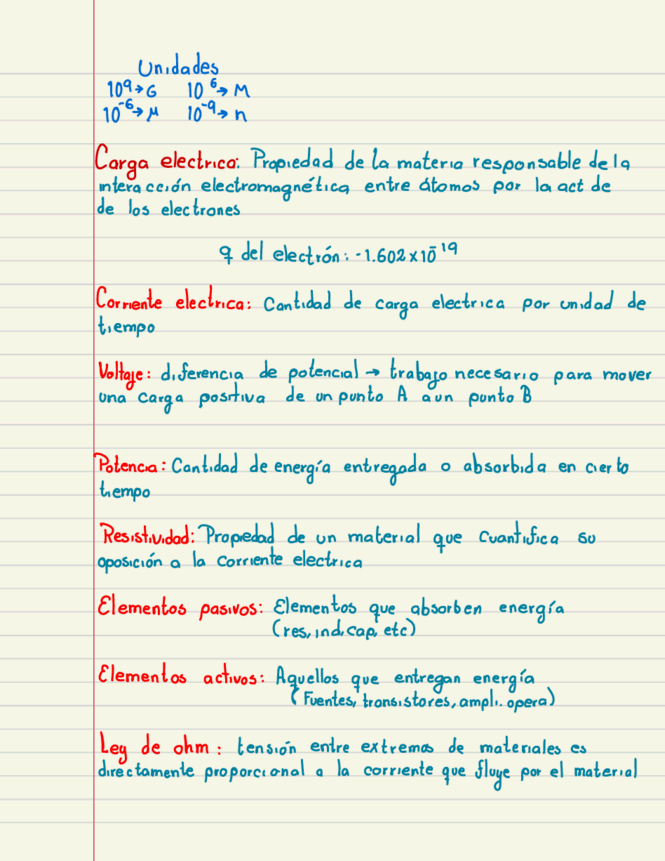 Unidades
10⁹→G 10⁶→M
10⁻⁶→μ 10⁻⁹→n
Carga electrica: Propiedad de la materia responsable de la
interacción electromagnética entre átomos por la act de
de los electrones
q del electrón: -1.602x10⁻¹⁹
Corriente electrica: Cantidad de carga electrica por unidad de
tiempo
Voltaje: diferencia de potencial → trabajo necesario para mover
una carga positiva de un punto A a un punto B
Potencia: Cantidad de energía entregada o absorbida en cierto
tiempo
Resistividad: Propiedad de un material que cuantifica su
oposición a la corriente electrica
Elementos pasivos: Elementos que absorben energía
(res, ind, cap, etc)
Elementos activos: Aquellos que entregan energía
(Fuentes, transistores, ampli. opera)
Ley de ohm: tensión entre extremos de materiales es
directamente proporcional a la corriente que fluye por el material